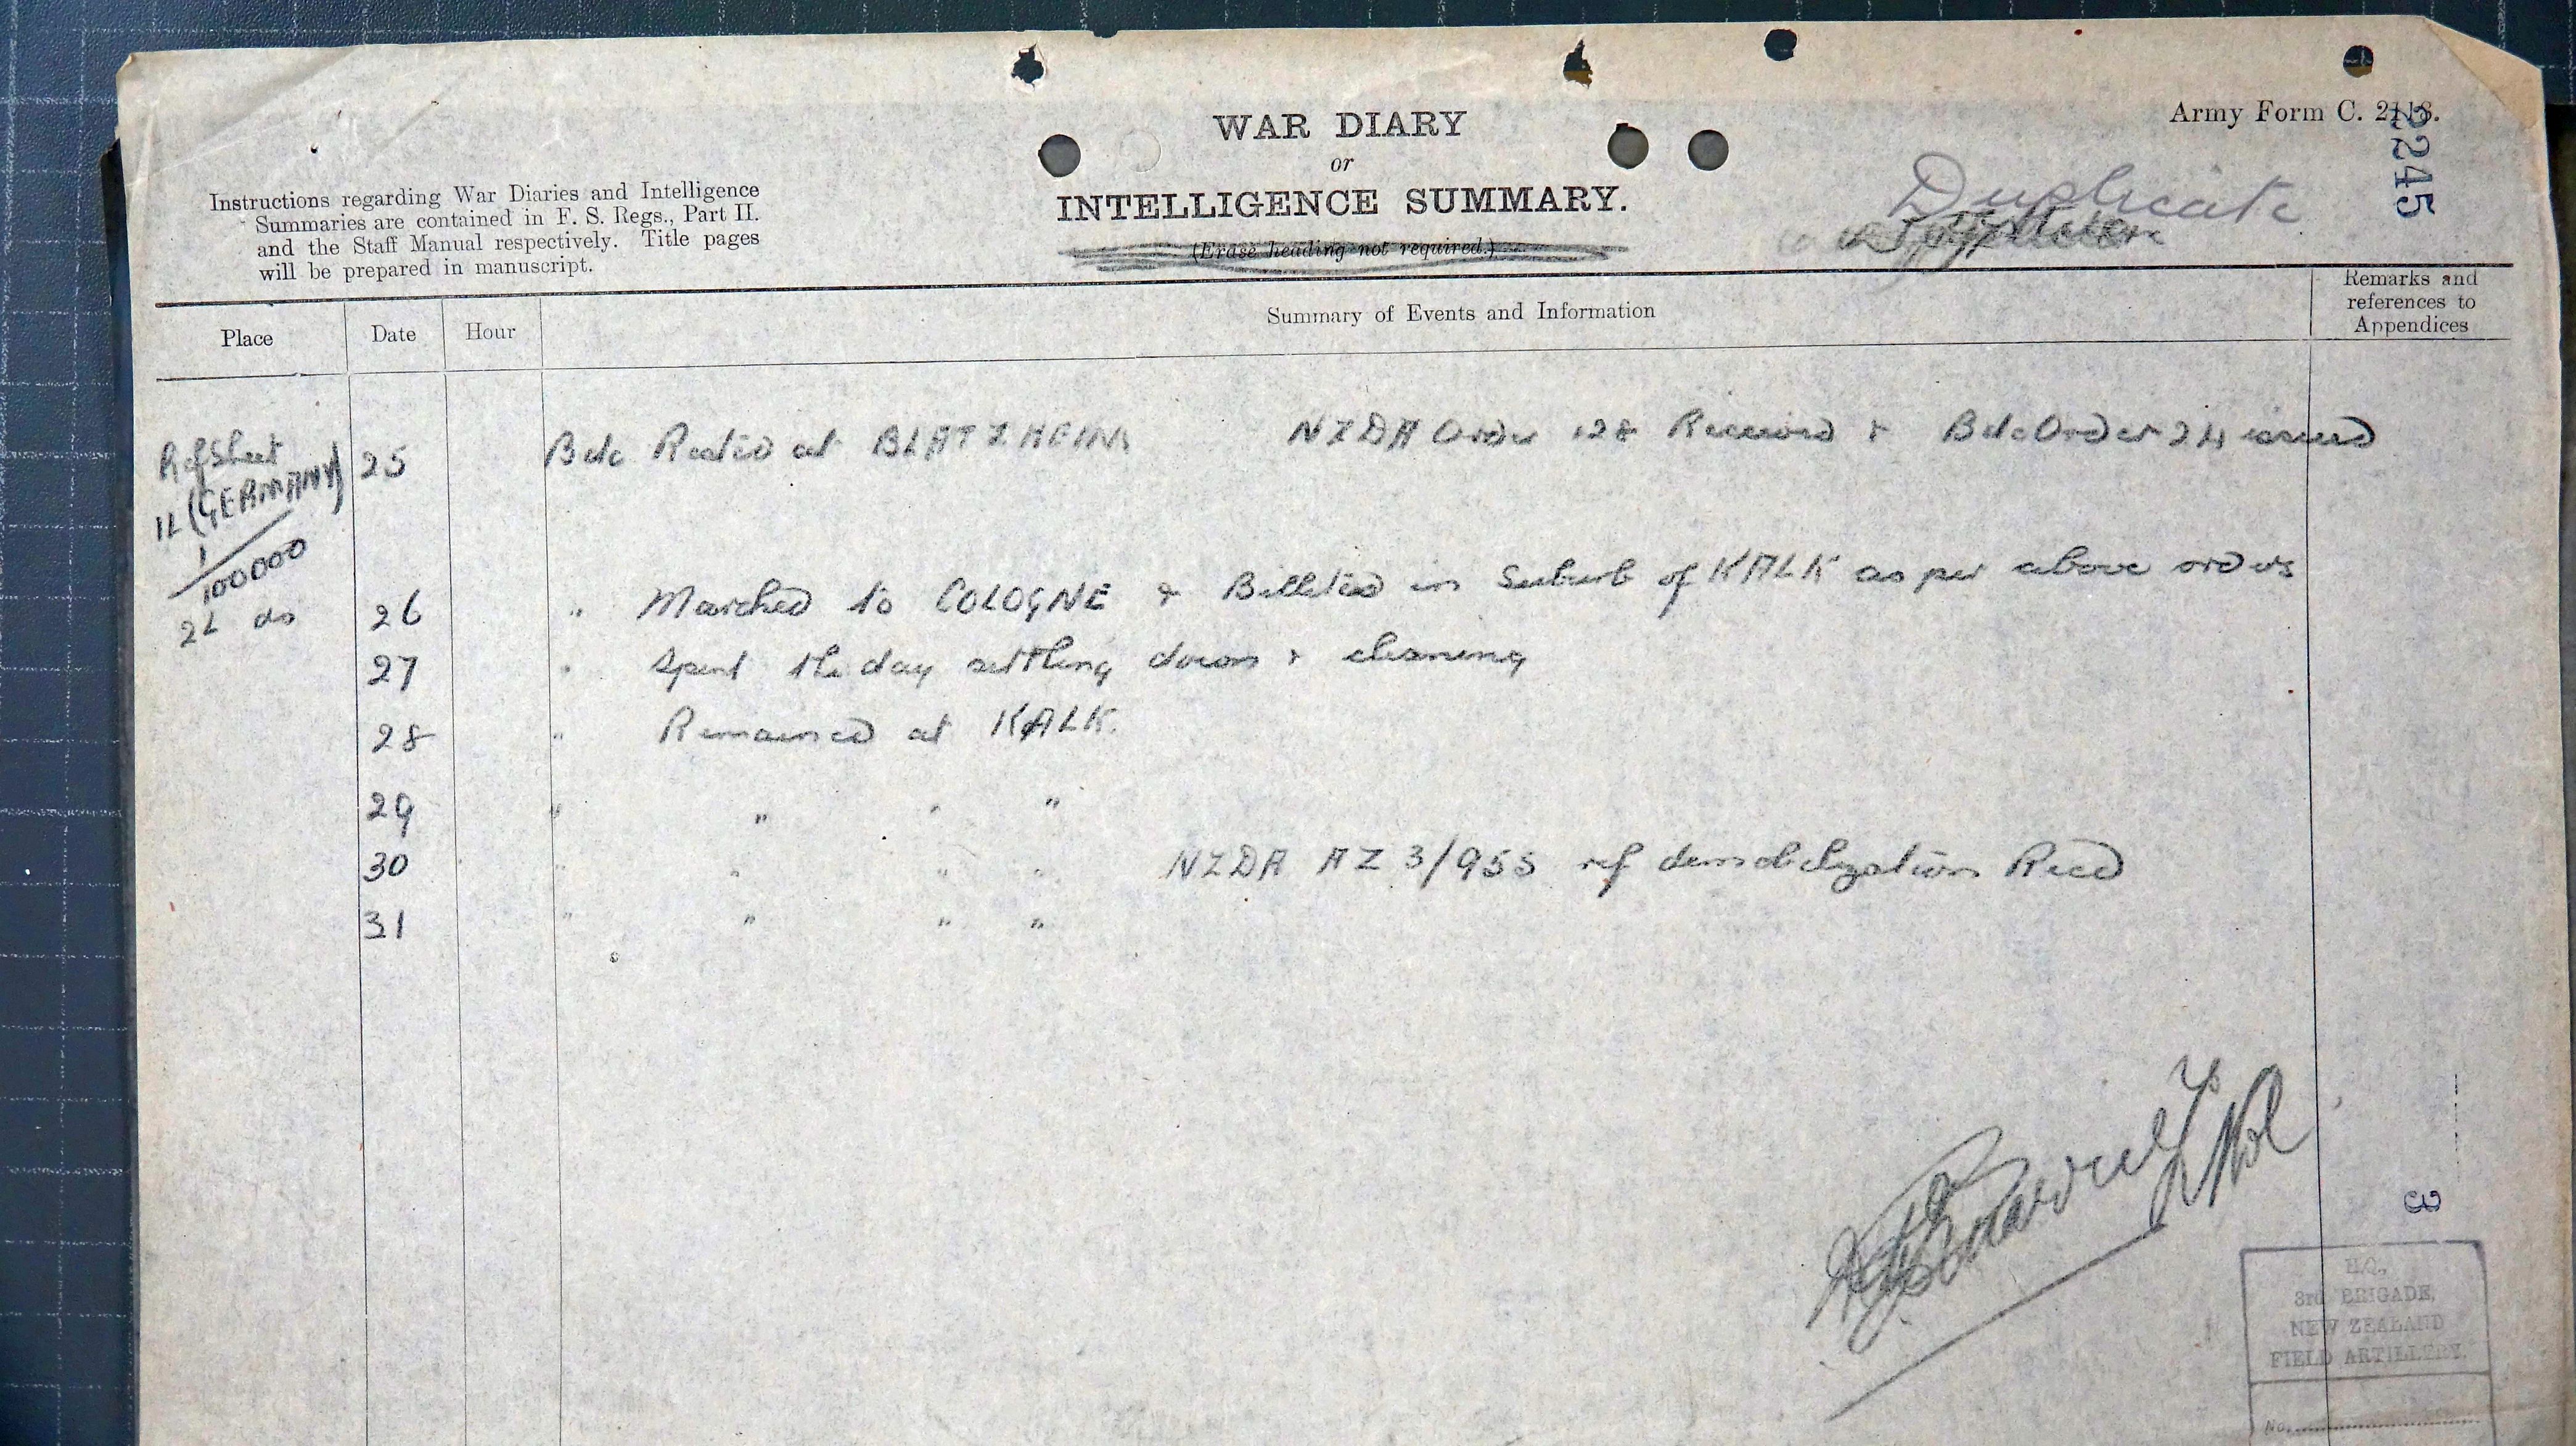 Army Form C. 2118.
2245
WAR DIARY
or
INTELLIGENCE SUMMARY.
(Erase heading not required.)
Duplicate
Instructions regarding War Diaries and Intelligence
Summaries are contained in F. S. Regs., Part II.
and the Staff Manual respectively. Title pages
will be prepared in manuscript.
Place Date Hour Summary of Events and Information Remarks and references to Appendices
Ref Sheet
1L (GERMANY)
1/100000
25 Bde Rested at BLATZHEIM NZDA Order 128 Received & Bde Order 24 issued
2L do 26 " Marched to COLOGNE & Billeted in Suburb of KALK as per above orders
27 " Spent the day settling down & cleaning
28 " Remained at KALK.
29 " " " "
30 " " " " NZDA AZ 3/955 ref demobilyzation Recd
31 " " " "
3
H.Q.,
3rd BRIGADE,
NEW ZEALAND
FIELD ARTILLERY.
No.